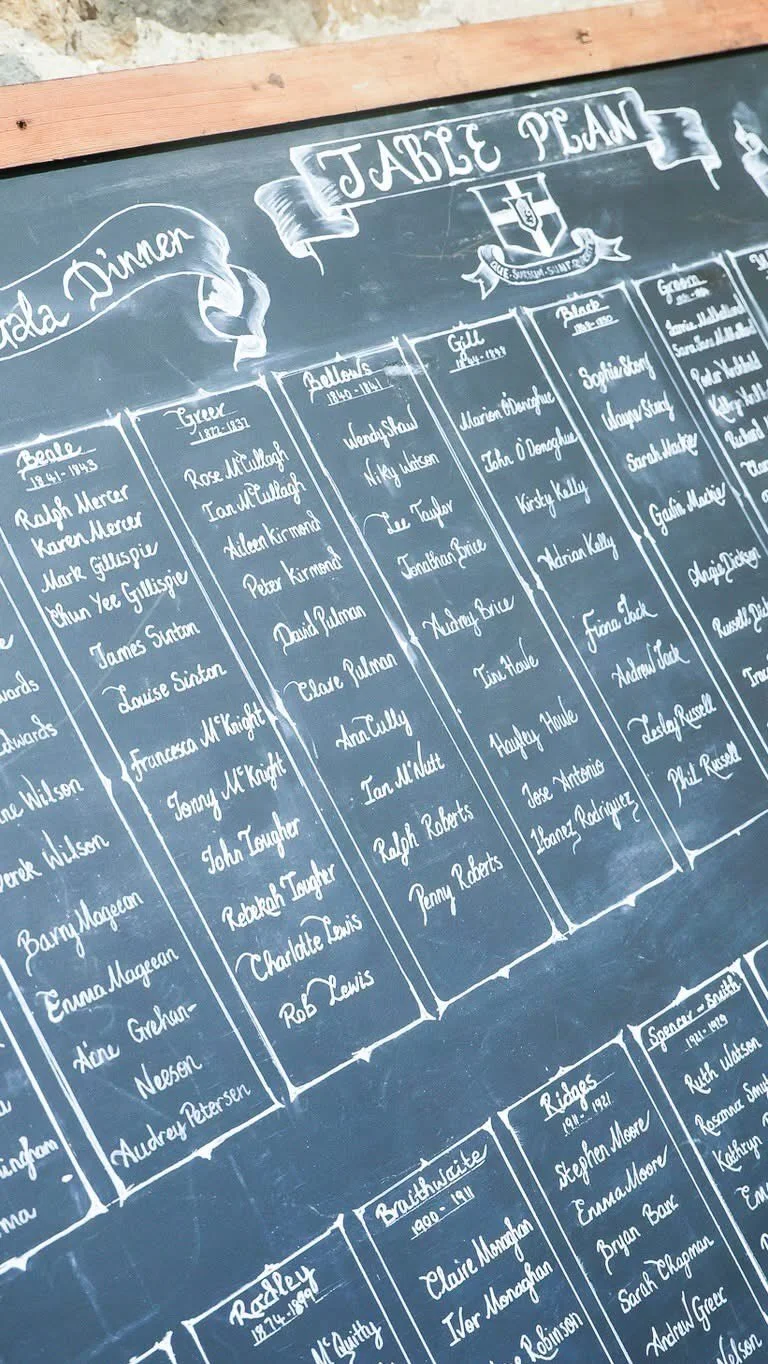 TABLE PLAN
Dinner
QUAE SURSUM
Beale
1841-1843
Ralph Mercer
Karen Mercer
Mark Gillispie
Chun Yee Gillispie
James Sinton
Louise Sinton
Francesca McKnight
Jonny McKnight
John Tougher
Rebekah Tougher
Charlotte Lewis
Rob Lewis
Greer
Rose McCullagh
Ian McCullagh
Aileen Kirmond
Peter Kirmond
David Pulman
Clare Pulman
Ann Cully
Ian McNutt
Ralph Roberts
Penny Roberts
Bellows
1840-1841
Wendy Shaw
Niky Watson
Lee Taylor
Jonathan Brice
Audrey Brice
Tim Howe
Hayley Howe
Jose Antonio
Ibanez Rodriguez
Gill
Marion O'Donoghue
John O'Donoghue
Kirsty Kelly
Adrian Kelly
Fiona Jack
Andrew Jack
Lesley Russell
Phil Russell
Black
Sophie Story
Wayne Story
Sarah Mackie
Gavin Mackie
Angie Dickson
Russell
Green
Richard
Edwards
Wilson
Derek Wilson
Barry Mageean
Emma Mageean
Aine Grehan-
Neeson
Audrey Petersen
Radley
1874-1899
McQuitty
Braithwaite
1900-1911
Claire Monaghan
Ivor Monaghan
Robinson
Ridges
1911-1921
Stephen Moore
Emma Moore
Bryan Barr
Sarah Chapman
Andrew Greer
Nelson
Spencer-Smith
1921-1923
Ruth Watson
Rosanna
Kathryn